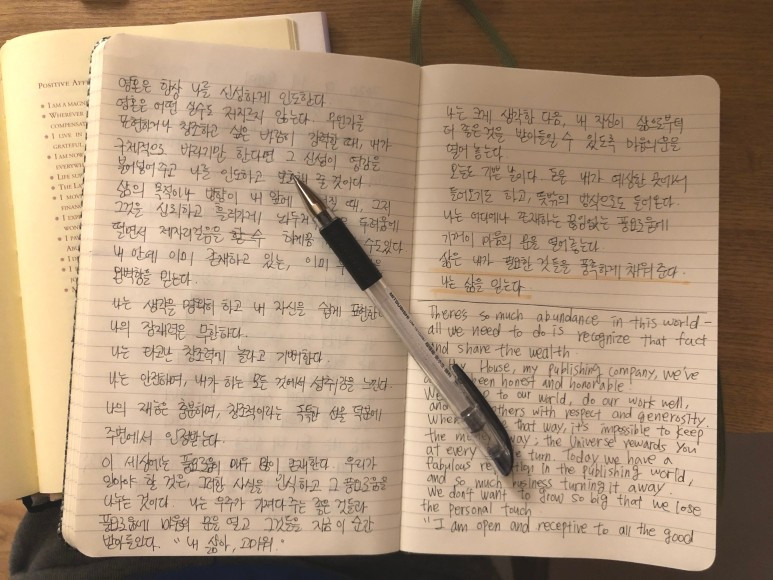 POSITIVE AFF
I AM A MAGN
WHEREVER
COMPENSAT
I LIVE IN
GRATEFUL
I AM NOW
EVERYWHER
LIFE SUP
THE LA
I MOV
FINANC
I EXP
WON
I PA
영혼은 항상 나를 신성하게 인도한다
영혼은 어떤 실수도 저지르지 않는다. 무언가를
표현하거나 창조하고 싶은 바람이 강력할 때, 내가
구체적으로 바라기만 한다면 그 신성이 영감을
불어넣어주고 나를 인도하고 보호해 줄 것이다.
삶의 목적이나 방향이 내 앞에 질 때, 그저
그것을 신뢰하고 흘러가게 놔두거 두려움에
떨면서 제자리걸음을 할 수 수도있다
내 안에 이미 존재하고 있는, 이미
완벽함을 믿는다.
나는 생각을 명확히 하고 내 자신을 쉽게 표현한다
나의 잠재력은 무한하다.
나는 타고난 창조력에 놀라고 기뻐한다.
나는 안전하며, 내가 하는 모든 것에서 성취감을 느낀다.
나의 재능은 충분하며, 창조적이라는 독특한 선물 덕분에
주변에서 인정받는다.
이 세상에는 풍요로움이 매우 많이 존재한다. 우리가
알아야 할 것은, 그러한 사실을 인식하고 그 풍요로움을
나누는 것이다. 나는 우주가 가져다 주는 좋은 것들과
풍요로움에 마음의 문을 열고 그것들을 지금 이 순간
받아들인다. "내 삶아, 고마워."
나는 크게 생각한 다음, 내 자신이 삶으로부터
더 좋은 것을 받아들일 수 있도록 마음의 문을
열어 놓는다.
오늘도 기쁜 날이다. 돈은 내가 예상한 곳에서
들어오기도 하고, 뜻밖의 방식으로도 들어온다.
나는 어디에나 존재하는 끊임없는 풍요로움에
기꺼이 마음의 문을 열어놓는다.
삶은 내가 필요한 것들을 풍족하게 채워 준다.
나는 삶을 믿는다.
Theres so much abundance in this world -
all we need to do is recognize that fact
and share the wealth.
House, my publishing company, we've
been honest and honorable
We to our world, do our work well,
and others with respect and generosity.
When that way, it's impossible to keep
the money away; the Universe rewards you
at every turn. Today we have a
fabulous in the publishing world,
and so much business turning it away.
We don't want to grow so big that we lose
the personal touch
"I am open and receptive to all the good